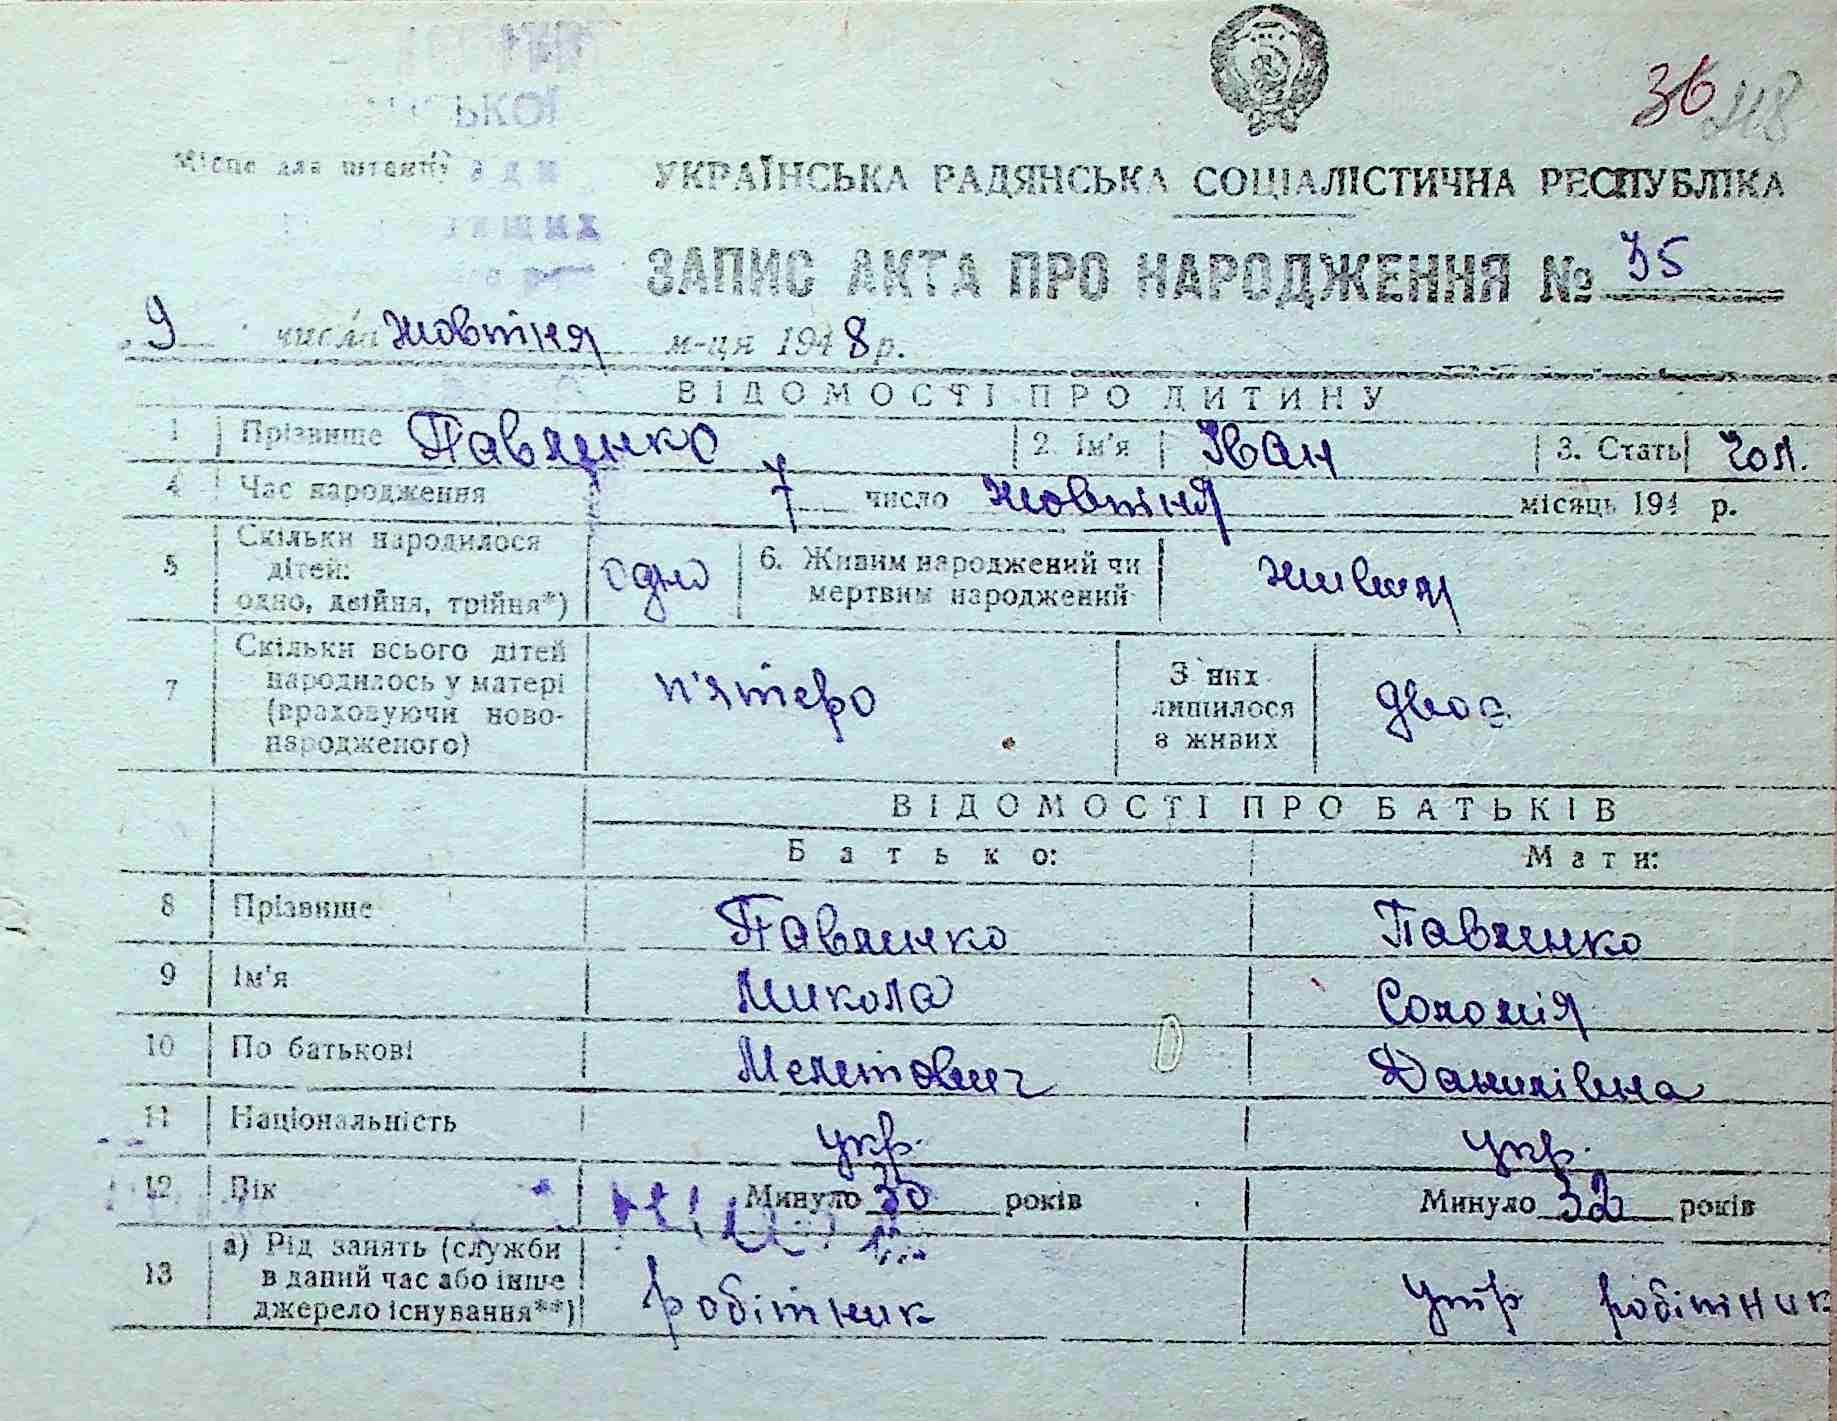 36 218
ЬКОЇ
Місце для штампу
УКРАЇНСЬКА РАДЯНСЬКА СОЦІАЛІСТИЧНА РЕСПУБЛІКА
ЗАПИС АКТА ПРО НАРОДЖЕННЯ № 35
9 числа жовтня м-ця 1948 р.
ВІДОМОСТІ ПРО ДИТИНУ
1 Прізвище Павленко 2. Ім'я Іван 3. Стать чол.
4 Час народження 7 число жовтня місяць 194 р.
5 Скільки народилося дітей: одно, двійня, трійня*) одно 6. Живим народжений чи мертвим народжений живим
7 Скільки всього дітей народилось у матері (враховуючи новонародженого) п'ятеро З них лишилося в живих двоє
ВІДОМОСТІ ПРО БАТЬКІВ
Батько: Мати:
8 Прізвище Павленко Павленко
9 Ім'я Микола Соломія
10 По батькові Мелетович Данилівна
11 Національність укр. укр.
12 Вік Минуло 30 років Минуло 32 років
13 а) Рід занять (служби в даний час або інше джерело існування**) робітник утр робітник